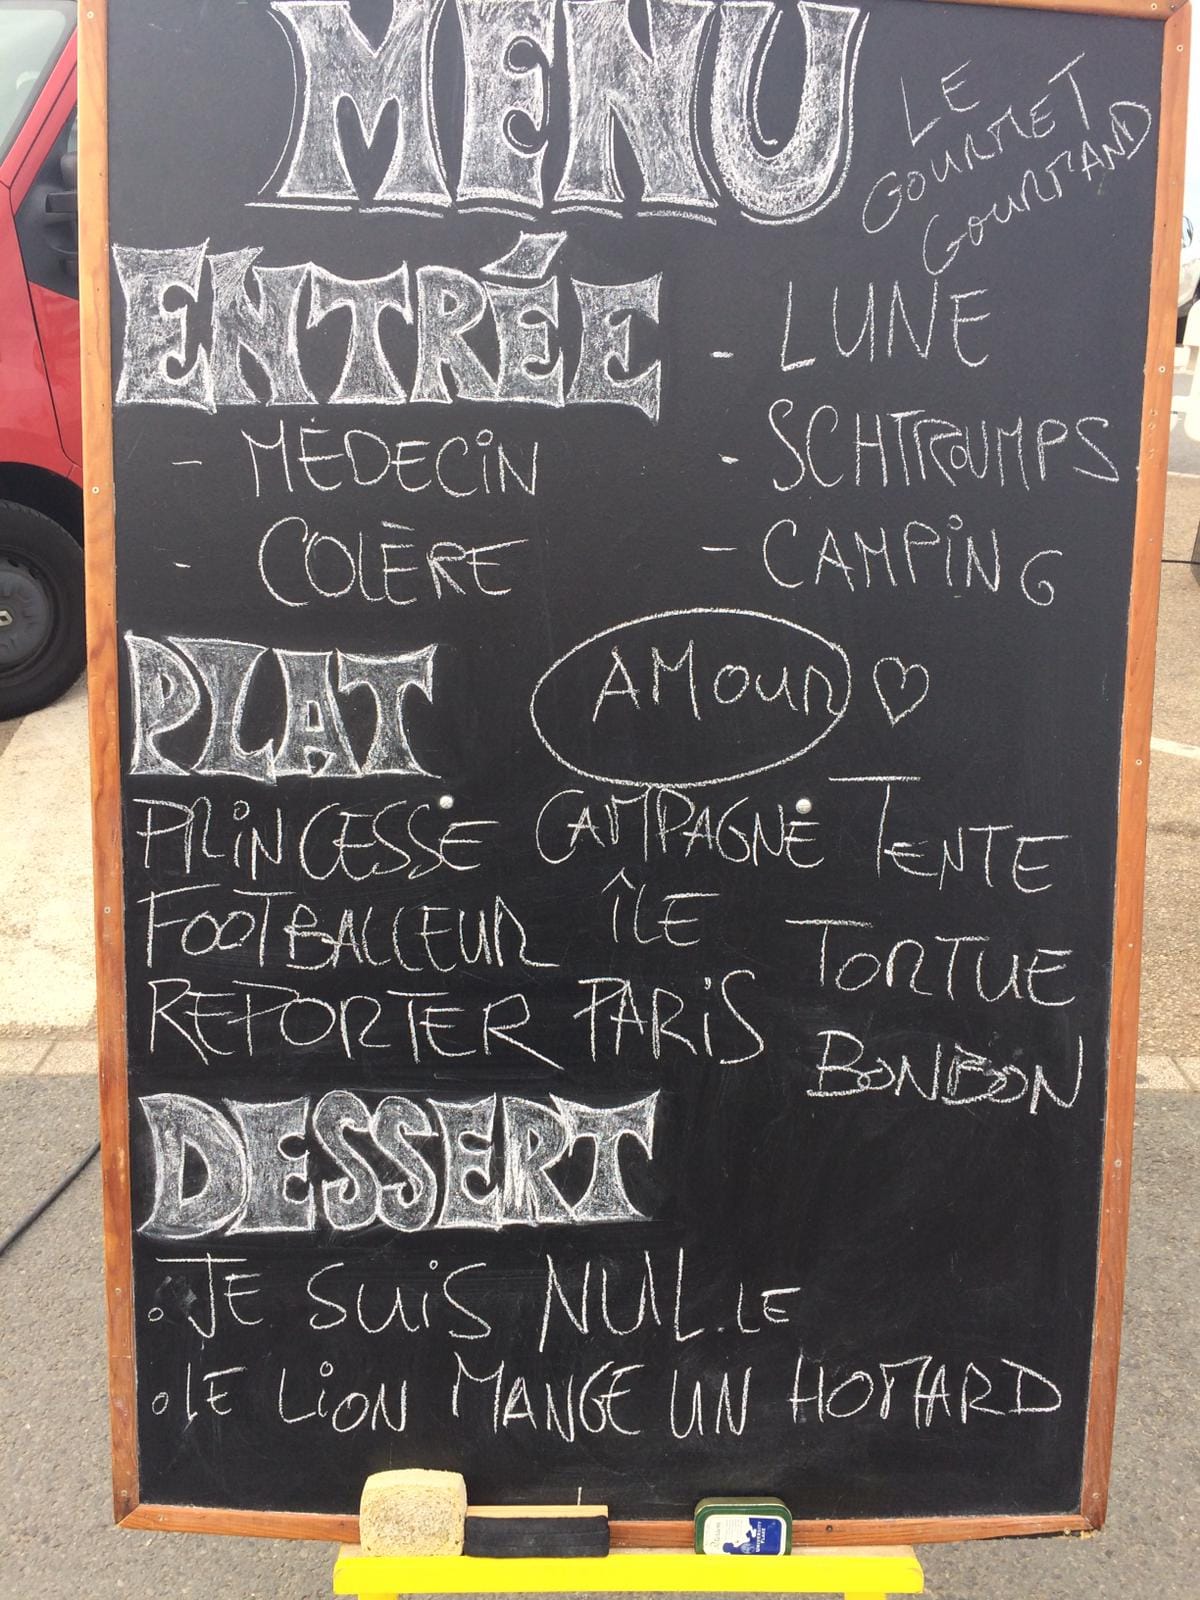 MENU
LE
GOURMET
GOURMAND
ENTRÉE
- MÉDECIN
- COLÈRE
- LUNE
- SCHTROUMPS
- CAMPING
PLAT
AMOUR ♡
PRINCESSE CAMPAGNE TENTE
FOOTBALLEUR ÎLE TORTUE
REPORTER PARIS BONBON
DESSERT
. JE SUIS NUL.LE
. LE LION MANGE UN HOMARD